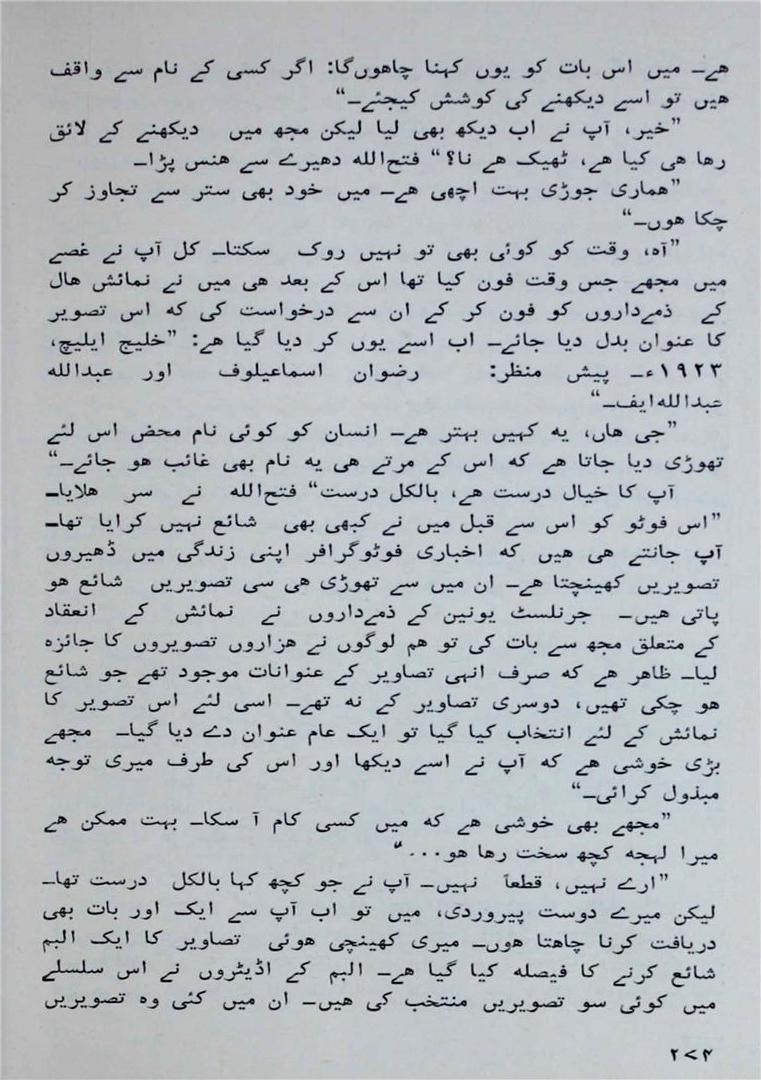 ھے۔ میں اس بات کو یوں کہنا چاھوں‌گا: اگر کسی کے نام سے واقف
ھیں تو اسے دیکھنے کی کوشش کیجئے۔“
”خیر، آپ نے اب دیکھ بھی لیا لیکن مجھ میں دیکھنے کے لائق
رھا ھی کیا ھے، ٹھیک ھے نا؟“ فتح‌اللہ دھیرے سے ھنس پڑا۔
”ھماری جوڑی بہت اچھی ھے۔ میں خود بھی ستر سے تجاوز کر
چکا ھوں۔“
”آہ، وقت کو کوئی بھی تو نہیں روک سکتا۔ کل آپ نے غصے
میں مجھے جس وقت فون کیا تھا اس کے بعد ھی میں نے نمائش ھال
کے ذمےداروں کو فون کر کے ان سے درخواست کی کہ اس تصویر
کا عنوان بدل دیا جائے۔ اب اسے یوں کر دیا گیا ھے: ”خلیج ایلیچ،
۱۹۲۳ء۔ پیش منظر: رضوان اسماعیلوف اور عبداللہ
عبداللہ‌ایف۔“
”جی ھاں، یہ کہیں بہتر ھے۔ انسان کو کوئی نام محض اس لئے
تھوڑی دیا جاتا ھے کہ اس کے مرتے ھی یہ نام بھی غائب ھو جائے۔“
آپ کا خیال درست ھے، بالکل درست“ فتح‌اللہ نے سر ھلایا۔
”اس فوٹو کو اس سے قبل میں نے کبھی بھی شائع نہیں کرایا تھا۔
آپ جانتے ھی ھیں کہ اخباری فوٹوگرافر اپنی زندگی میں ڈھیروں
تصویریں کھینچتا ھے۔ ان میں سے تھوڑی ھی سی تصویریں شائع ھو
پاتی ھیں۔ جرنلسٹ یونین کے ذمےداروں نے نمائش کے انعقاد
کے متعلق مجھ سے بات کی تو ھم لوگوں نے ھزاروں تصویروں کا جائزہ
لیا۔ ظاھر ھے کہ صرف انہی تصاویر کے عنوانات موجود تھے جو شائع
ھو چکی تھیں، دوسری تصاویر کے نہ تھے۔ اسی لئے اس تصویر کا
نمائش کے لئے انتخاب کیا گیا تو ایک عام عنوان دے دیا گیا۔ مجھے
بڑی خوشی ھے کہ آپ نے اسے دیکھا اور اس کی طرف میری توجہ
مبذول کرائی۔“
”مجھے بھی خوشی ھے کہ میں کسی کام آ سکا۔ بہت ممکن ھے
میرا لہجہ کچھ سخت رھا ھو...“
”ارے نہیں، قطعاً نہیں۔ آپ نے جو کچھ کہا بالکل درست تھا۔
لیکن میرے دوست پیروردی، میں تو اب آپ سے ایک اور بات بھی
دریافت کرنا چاھتا ھوں۔ میری کھینچی ھوئی تصاویر کا ایک البم
شائع کرنے کا فیصلہ کیا گیا ھے۔ البم کے اڈیٹروں نے اس سلسلے
میں کوئی سو تصویریں منتخب کی ھیں۔ ان میں کئی وہ تصویریں
۲۷۴